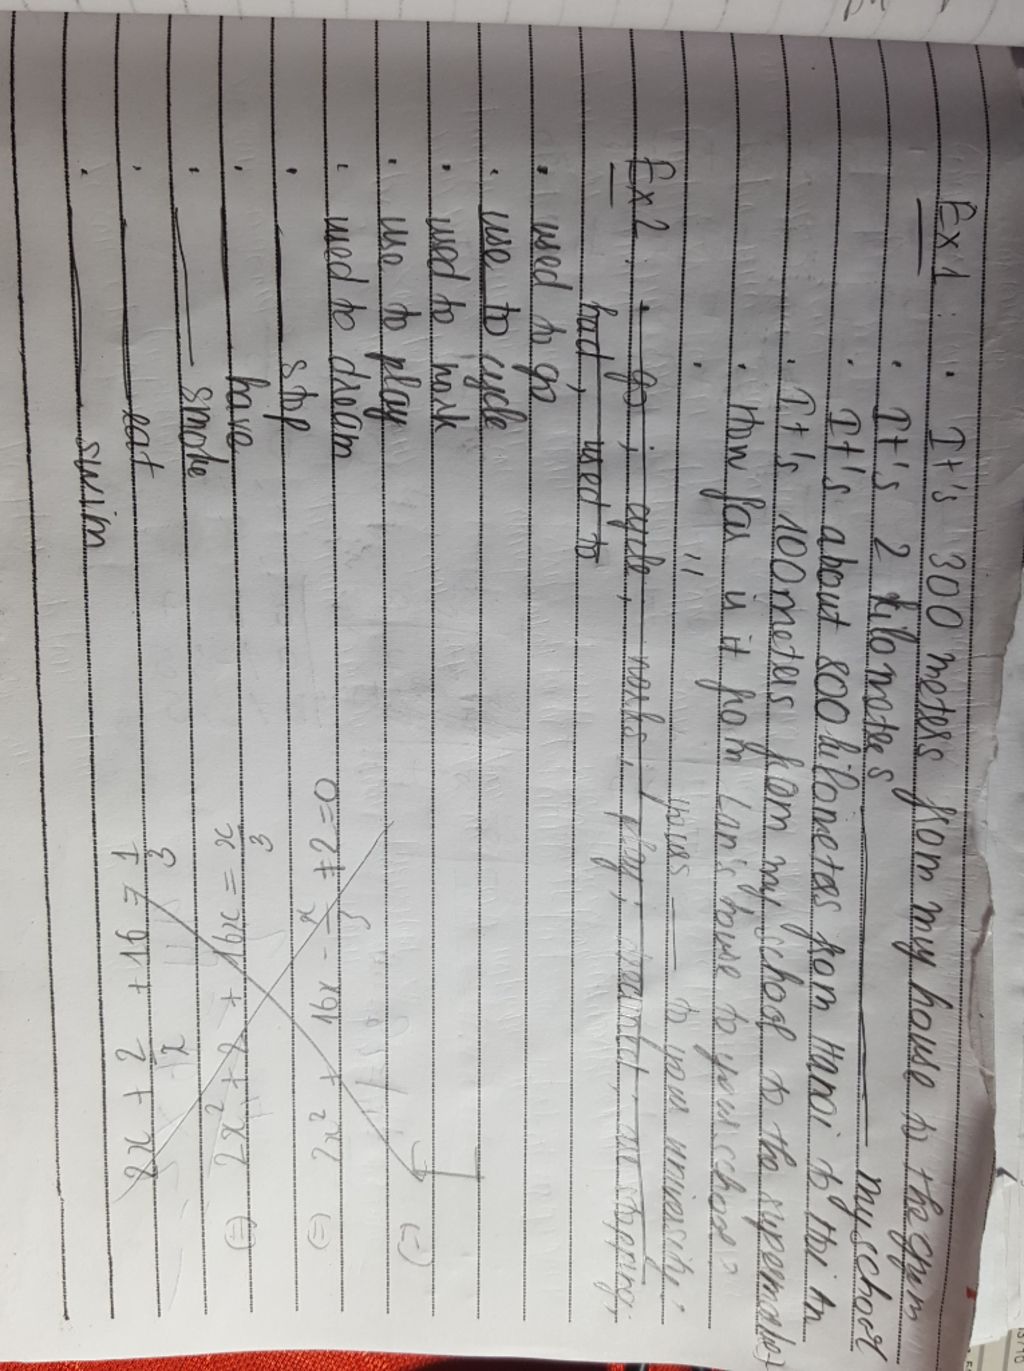 Ex 1: . It's 300 meters from my house to the gym
. It's 2 kilometers ——— my school
. It's about 800 kilometers from Hanoi to Hoi An
. It's 100 meters from my school to the supermarket
. How far is it from Lan's house to your school?
. " yours —— to your university?
Ex 2: . go, cycle, works, play,
had, used to
. used to go
. use to cycle
. used to work
. use to play
. used to dream
. —— stop
. —— have
. —— smoke
. —— eat
. —— swim
2x + 2/x + 16 = 1/3
(=) 2x² + 2 + 16x = x/3
(=) 2x² + 16x - x/3 + 2 = 0
(=)